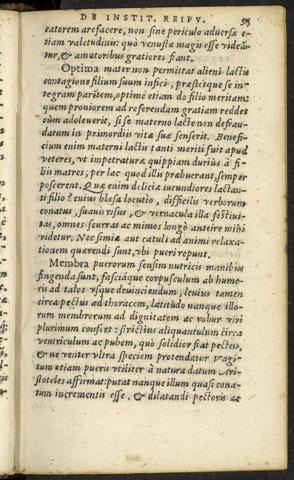 DE INSTIT. REIPV. 93
catorem arefacere, non sine periculo aduersæ e-
tiam valetudinis: quò venustæ magis esse videã-
tur, & amatoribus gratiores fiant.
Optima mater non permittat alieni lactis
contagione filium suum infici, præsæpius se in-
tegram parẽtem, optimè etiam de filio meritam:
quem proniorem ad referendam gratiam reddet
cùm adoleuerit, si se materno lacte non defrau-
datum in primordijs vitæ suæ senserit. Benefi-
cium enim materni lactis tanti meriti fuit apud
veteres, vt impetraturæ quippiam durius à fi-
lijs matres, per lac quod illis præburant, semper
poscerent. Quæ enim delicia iucundiores lactan-
ti filio? cuius blæsa locutio, difficilis verborum
conatus, suauis risus, & vernacula illa festiui-
tas, omnes scurras ac mimos longè anteire mihi
videtur. Nec simiæ aut catuli ad animi relaxa-
tionem quærendi sunt, vbi pueri repunt.
Membra puerorum sensim nutricis manibus
fingenda sunt, fasciáque corpusculum ab hume-
ris ad talos vsque deuinciendum, leuius tamen
circa pectus ad thoracem, latitudo nanque illo-
rum membrorum ad dignitatem ac robur viri
plurimum confert: strictius aliquantulum circa
ventriculum ac pubem, quò solidior fiat pecten,
& ne venter vltra speciem protendatur. Vagi-
tum etiam pueris vtiliter à natura datum Ari-
stoteles affirmat: putat nanque illum quasi cona-
tum incrementis esse, & dilatandi pectoris ac